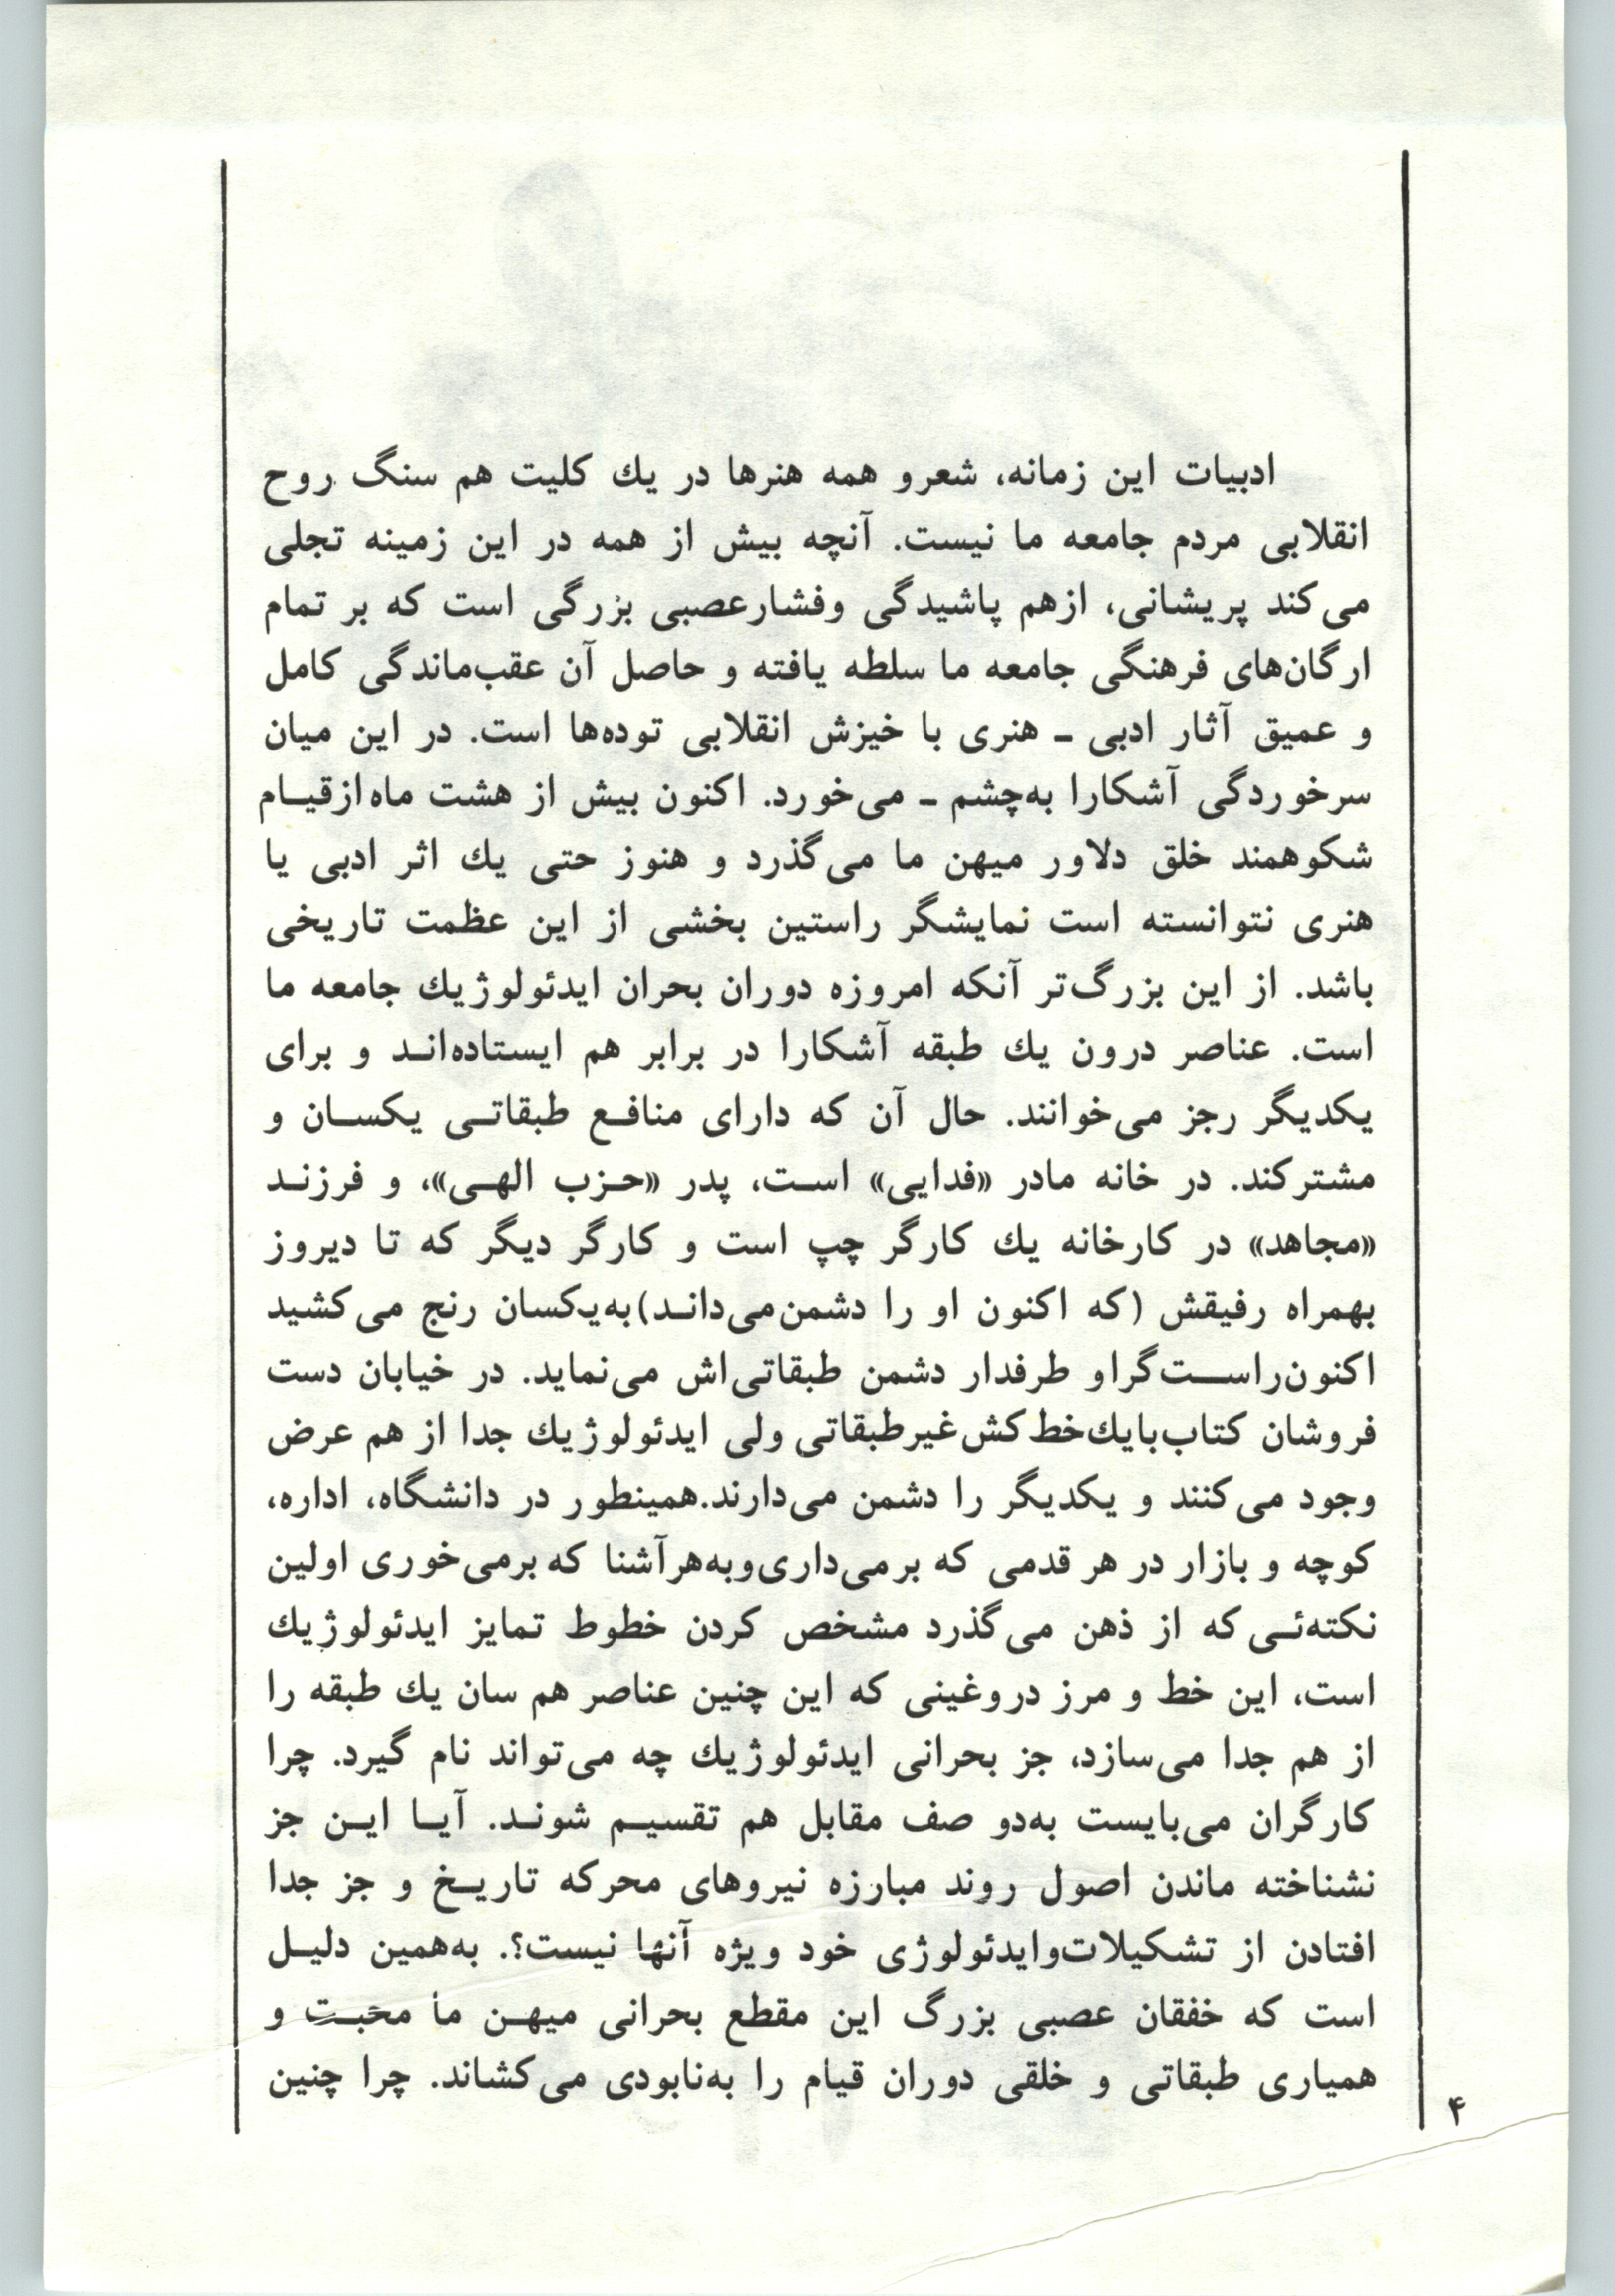 ادبیات این زمانه، شعرو همه هنرها در یك کلیت هم سنگ روح
انقلابی مردم جامعه ما نیست. آنچه بیش از همه در این زمینه تجلی
می‌کند پریشانی، ازهم پاشیدگی وفشارعصبی بزرگی است که بر تمام
ارگان‌های فرهنگی جامعه ما سلطه یافته و حاصل آن عقب‌ماندگی کامل
و عمیق آثار ادبی ـ هنری با خیزش انقلابی توده‌ها است. در این میان
سرخوردگی آشکارا به‌چشم ـ می‌خورد. اکنون بیش از هشت ماه ازقیـام
شکوهمند خلق دلاور میهن ما می‌گذرد و هنوز حتی یك اثر ادبی یا
هنری نتوانسته است نمایشگر راستین بخشی از این عظمت تاریخی
باشد. از این بزرگ‌تر آنکه امروزه دوران بحران ایدئولوژیك جامعه ما
است. عناصر درون یك طبقه آشکارا در برابر هم ایستاده‌انـد و برای
یکدیگر رجز می‌خوانند. حال آن که دارای منافـع طبقاتـی یکسـان و
مشترکند. در خانه مادر «فدایی» اسـت، پدر «حـزب الهـی»، و فرزنـد
«مجاهد» در کارخانه یك کارگر چپ است و کارگر دیگر که تا دیروز
بهمراه رفیقش (که اکنون او را دشمن‌می‌دانـد)به‌یکسان رنج می‌کشید
اکنون‌راسـت‌گراو طرفدار دشمن طبقاتی‌اش می‌نماید. در خیابان دست
فروشان کتاب‌بایك‌خط‌کش‌غیرطبقاتی ولی ایدئولوژیك جدا از هم عرض
وجود می‌کنند و یکدیگر را دشمن می‌دارند.همینطور در دانشگاه، اداره،
کوچه و بازار در هر قدمی که برمی‌داری‌وبه‌هرآشنا که برمی‌خوری اولین
نکته‌ئـی که از ذهن می‌گذرد مشخص کردن خطوط تمایز ایدئولوژیك
است، این خط و مرز دروغینی که این چنین عناصر هم سان یك طبقه را
از هم جدا می‌سازد، جز بحرانی ایدئولوژیك چه می‌تواند نام گیرد. چرا
کارگران می‌بایست به‌دو صف مقابل هم تقسیـم شونـد. آیـا ایـن جز
نشناخته ماندن اصول روند مبارزه نیروهای محرکه تاریـخ و جز جدا
افتادن از تشکیلات‌وایدئولوژی خود ویژه آنها نیست؟. به‌همین دلیـل
است که خفقان عصبی بزرگ این مقطع بحرانی میهـن ما محبـت و
همیاری طبقاتی و خلقی دوران قیام را به‌نابودی می‌کشاند. چرا چنین
۴